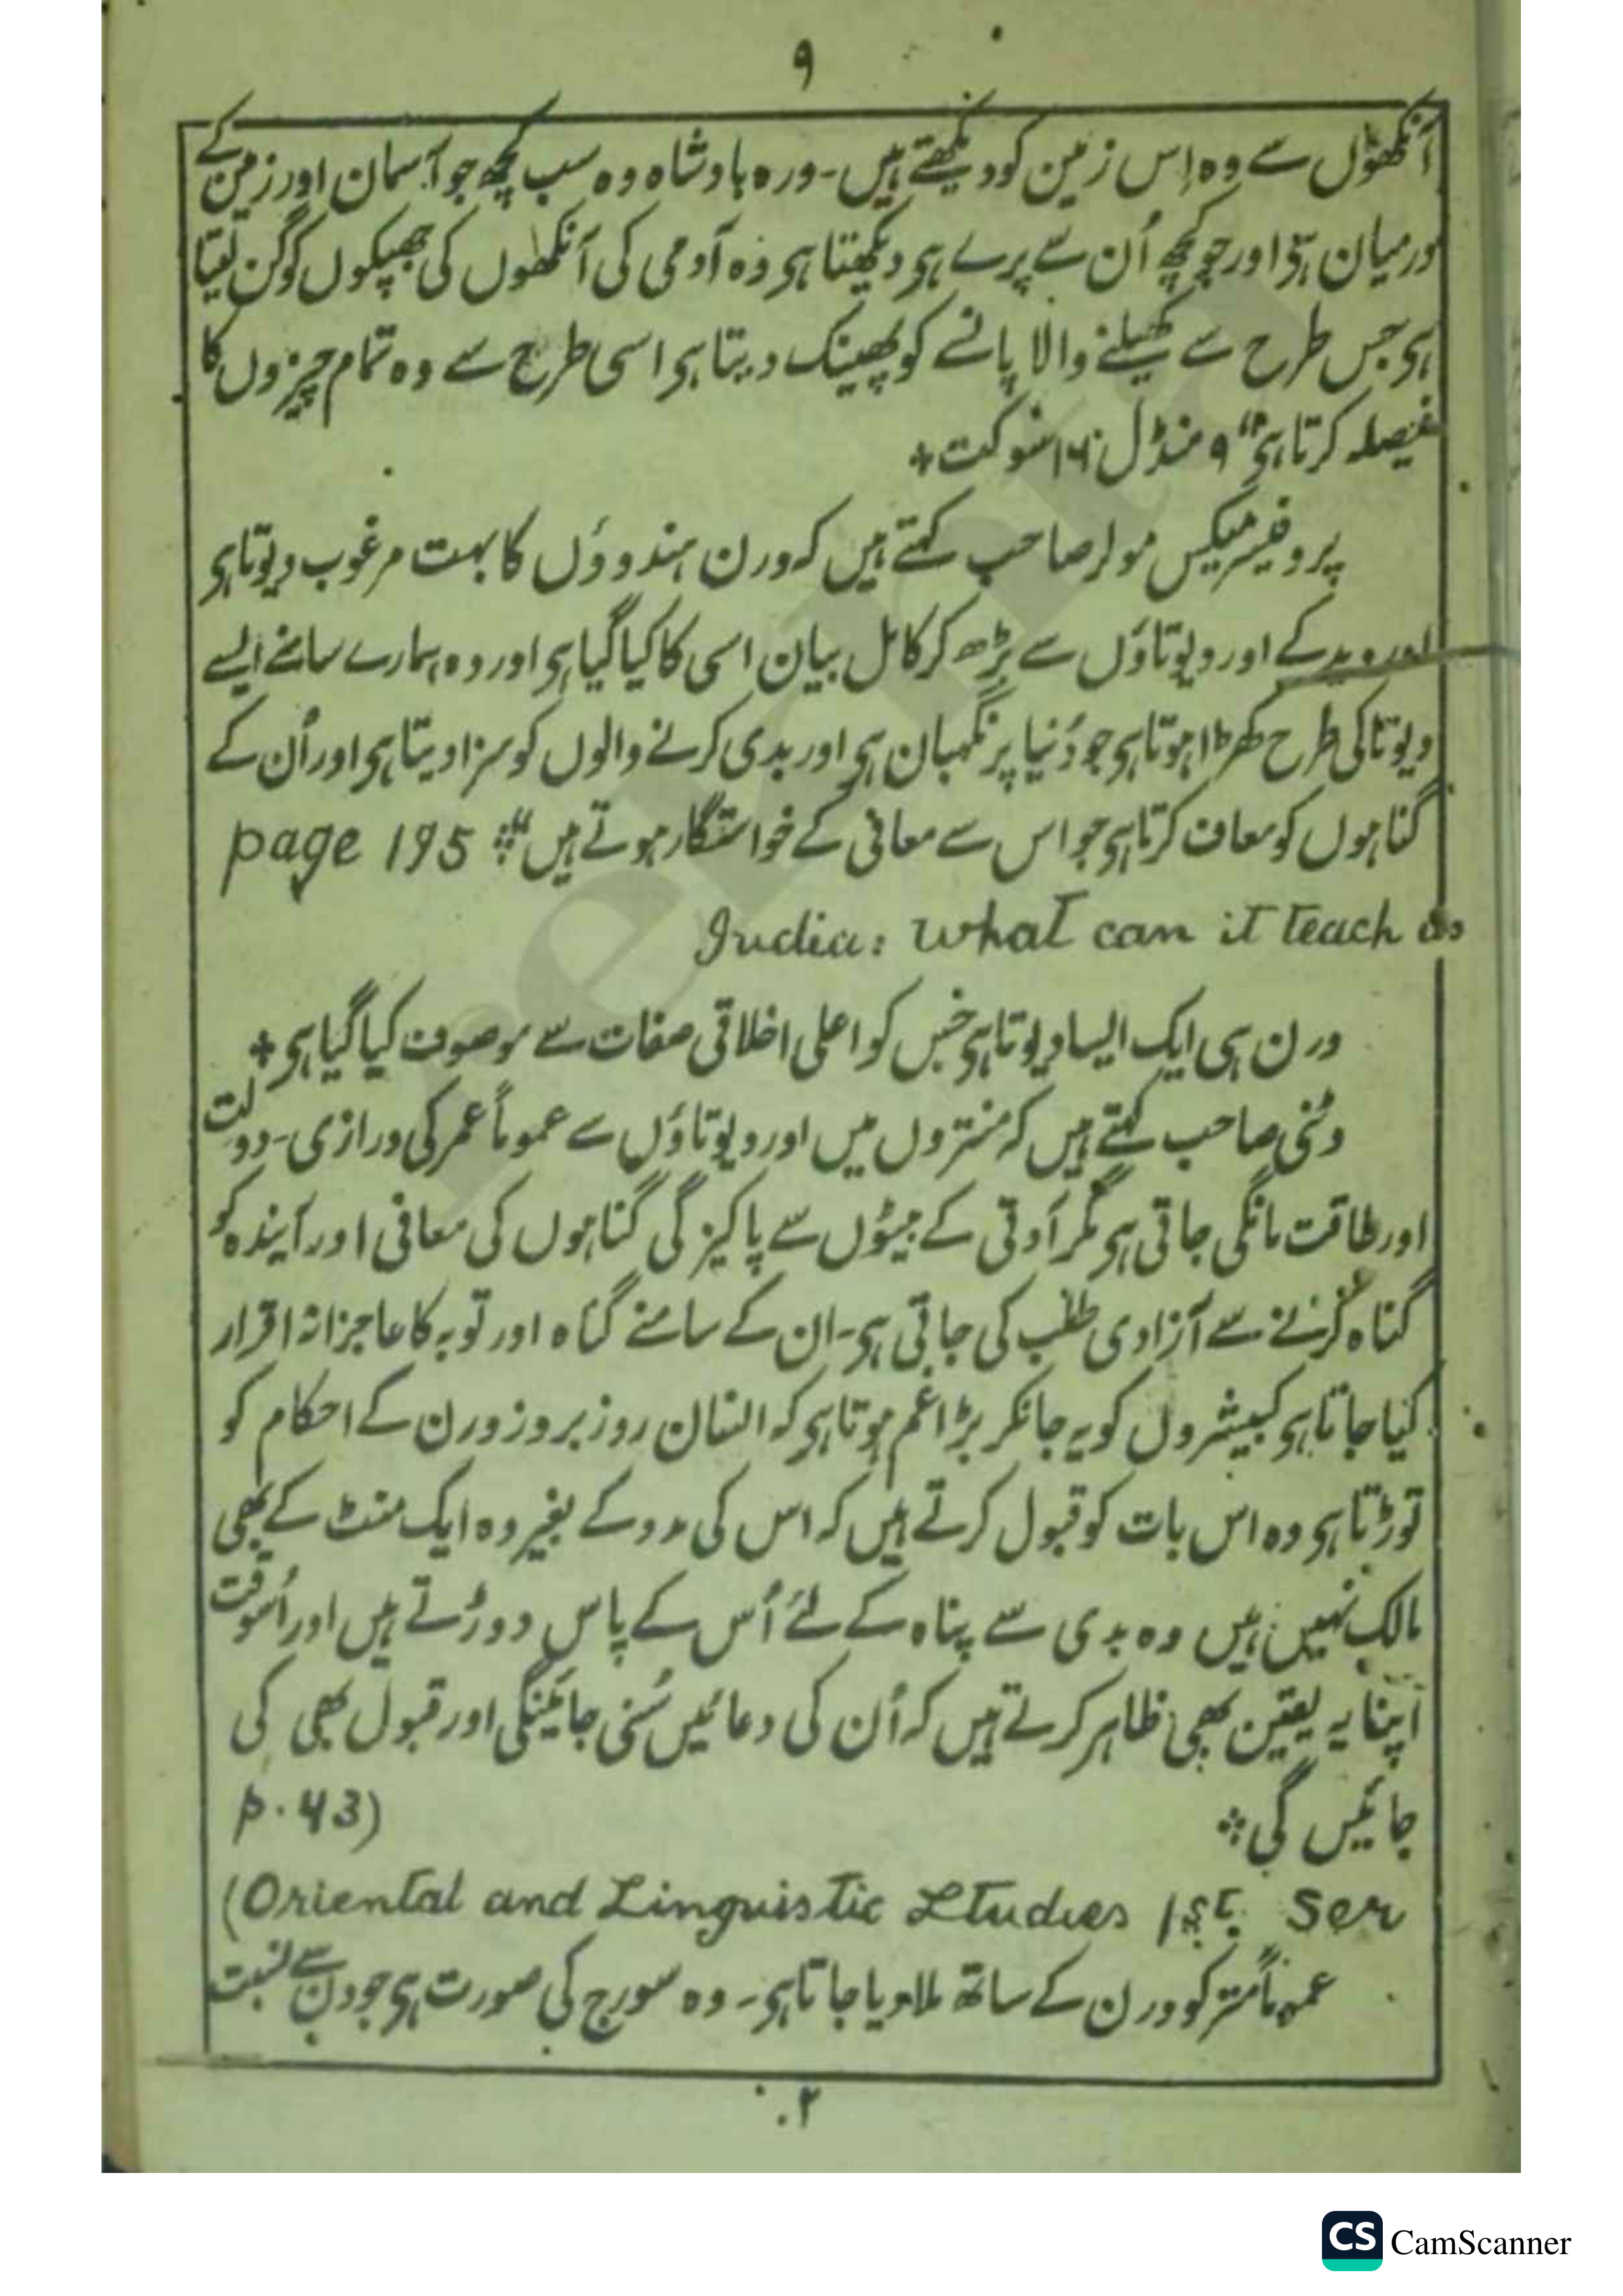 ۹
آنکھوں سے وہ اِس زمین کو دیکھتے ہیں۔ ورہ بادشاہ وہ سب کچھ جو آسمان اور زمین کے
درمیان ہی اور جو کچھ اُن سے پرے ہی دیکھتا ہی وہ آدمی کی آنکھوں کی جھپکوں کو گن لیتا
ہی جس طرح سے کھیلنے والا پانسے کو پھینک دیتا ہی اسی طرح سے وہ تمام چیزوں کا
فیصلہ کرتا ہی" ۹ منڈل ۱۶ سوکت +
پروفیسر میکس مولر صاحب کہتے ہیں کہ ورن ہندوؤں کا بہت مرغوب دیوتا ہی
اور وید کے اور دیوتاؤں سے بڑھ کر کامل بیان اسی کا کیا گیا ہی اور وہ ہمارے سامنے ایسے
دیوتا کی طرح کھڑا ہوتا ہی جو دُنیا پر نگہبان ہی اور بدی کرنے والوں کو سزا دیتا ہی اور اُن کے
گناہوں کو معاف کرتا ہی جو اس سے معافی کے خواستگار ہوتے ہیں" page 195
India: what can it teach us
ورن ہی ایک ایسا دیوتا ہی جس کو اعلی اخلاقی صفات سے موصوف کیا گیا ہی +
وٹنی صاحب کہتے ہیں کہ منتروں میں اور دیوتاؤں سے عموماً عمر کی درازی۔ دولت
اور طاقت مانگی جاتی ہی مگر آدتی کے بیٹوں سے پاکیزگی گناہوں کی معافی اور آیندہ کو
گناہ کرنے سے آزادی طلب کی جاتی ہی۔ ان کے سامنے گناہ اور توبہ کا عاجزانہ اقرار
کیا جاتا ہی کبیشروں کو یہ جانکر بڑا غم ہوتا ہی کہ انسان روز بروز ورن کے احکام کو
توڑتا ہی وہ اس بات کو قبول کرتے ہیں کہ اس کی مدد کے بغیر وہ ایک منٹ کے بھی
مالک نہیں ہیں وہ بدی سے پناہ کے لئے اُس کے پاس دوڑتے ہیں اور اُسوقت
اپنا یہ یقین بھی ظاہر کرتے ہیں کہ اُن کی دعائیں سُنی جائینگی اور قبول بھی کی
جائیں گی p. 43)
(Oriental and Linguistic Studies 1st. Ser
عموماً متر کو ورن کے ساتھ ملا دیا جاتا ہی۔ وہ سورج کی صورت ہی جو دن سے نسبت
۲
rekhta
CS CamScanner